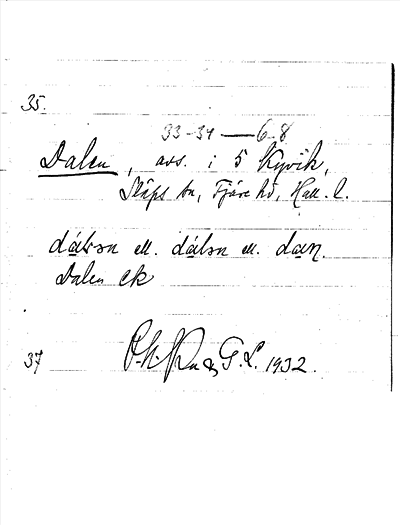 35.
33-34 — 6-8
Dalen, avs. i 5 Kyvik,
Släps sn, Fjäre hd, Hall. l.
dálən ell. dálən ell. daṇ.
Dalen ek
37 G. L. 1932.